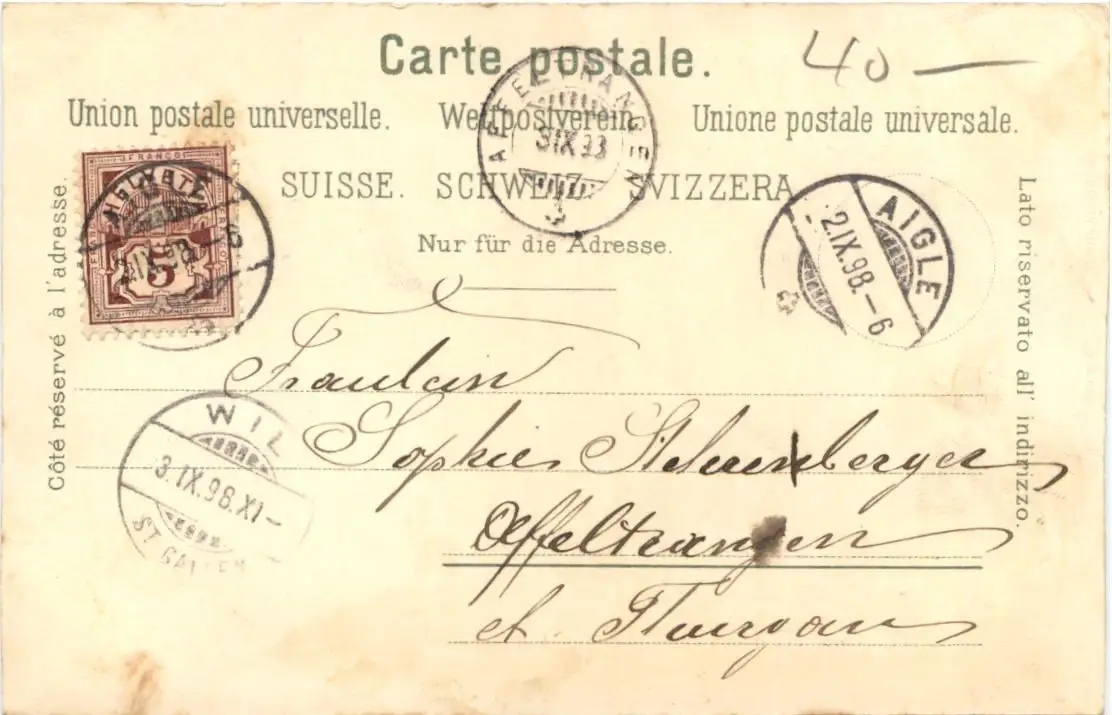 Carte postale.
40 —
Union postale universelle. Weltpostverein. Unione postale universale.
SUISSE. SCHWEIZ. SVIZZERA.
Nur für die Adresse.
Côté réservé à l'adresse.
Lato riservato all' indirizzo.
FRANCO
5
2.IX.98.–6
AFFELTRANGEN
3 IX 93
AIGLE
2.IX.98.–6
WIL
3.IX.98.XI–
ST GALLEN
Fraulein
Sophie
Affeltrangen
ct. Thurgau